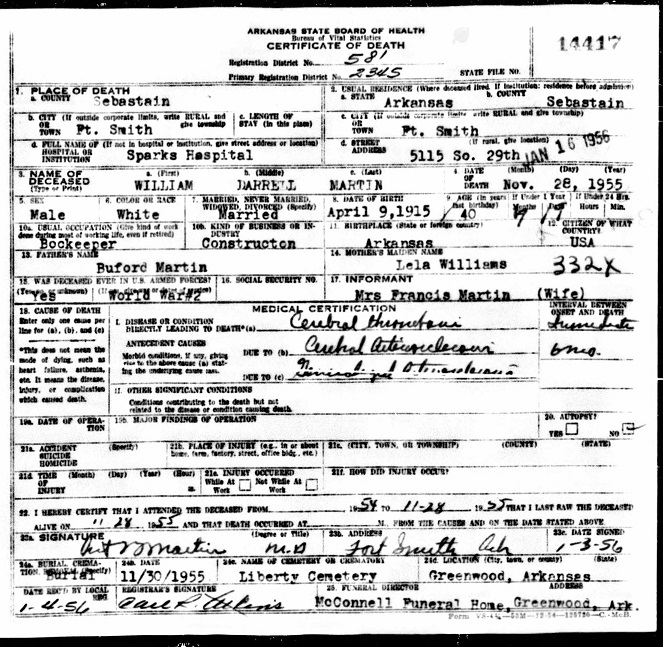 ARKANSAS STATE BOARD OF HEALTH
Bureau of Vital Statistics
CERTIFICATE OF DEATH
14417
Registration District No. 581
Primary Registration District No. 2345 STATE FILE NO.
1. PLACE OF DEATH 2. USUAL RESIDENCE (Where deceased lived. If institution: residence before admission)
a. COUNTY Sebastain a. STATE Arkansas b. COUNTY Sebastain
b. CITY (If outside corporate limits, write RURAL and give township) OR TOWN Ft. Smith c. LENGTH OF STAY (in this place) c. CITY (If outside corporate limits, write RURAL and give township) OR TOWN Ft. Smith
d. FULL NAME OF (If not in hospital or institution, give street address or location) HOSPITAL OR INSTITUTION Sparks Hospital d. STREET ADDRESS (If rural, give location) 5115 So. 29th
JAN 16 1956
3. NAME OF DECEASED (Type or Print) a. (First) WILLIAM b. (Middle) DARRELL c. (Last) MARTIN 4. DATE OF DEATH (Month) (Day) (Year) Nov. 28, 1955
5. SEX Male 6. COLOR OR RACE White 7. MARRIED, NEVER MARRIED, WIDOWED, DIVORCED (Specify) Married 8. DATE OF BIRTH April 9,1915 9. AGE (In years last birthday) 40 If Under 1 Year Months Days If Under 24 Hrs. Hours Min.
10a. USUAL OCCUPATION (Give kind of work done during most of working life, even if retired) Bockeeper 10b. KIND OF BUSINESS OR INDUSTRY Constructon 11. BIRTHPLACE (State or foreign country) Arkansas 12. CITIZEN OF WHAT COUNTRY? USA
13. FATHER'S NAME Buford Martin 14. MOTHER'S MAIDEN NAME Lela Williams 332X
15. WAS DECEASED EVER IN U.S. ARMED FORCES? Yes World War#2 16. SOCIAL SECURITY NO. 17. INFORMANT Mrs Francis Martin (Wife)
18. CAUSE OF DEATH
Enter only one cause per line for (a), (b), and (c)
MEDICAL CERTIFICATION INTERVAL BETWEEN ONSET AND DEATH
I. DISEASE OR CONDITION DIRECTLY LEADING TO DEATH* (a) Cerebral thrombosis Immediate
*This does not mean the mode of dying, such as heart failure, asthenia, etc. It means the disease, injury, or complication which caused death.
ANTECEDENT CAUSES
Morbid conditions, if any, giving rise to the above cause (a) stating the underlying cause last.
DUE TO (b) Cerebral Arteriosclerosis 6 mo.
DUE TO (c)
II. OTHER SIGNIFICANT CONDITIONS
Conditions contributing to the death but not related to the disease or condition causing death.
19a. DATE OF OPERATION 19b. MAJOR FINDINGS OF OPERATION 20. AUTOPSY? YES NO
21a. ACCIDENT SUICIDE HOMICIDE (Specify) 21b. PLACE OF INJURY (e.g., in or about home, farm, factory, street, office bldg., etc.) 21c. (CITY, TOWN, OR TOWNSHIP) (COUNTY) (STATE)
21d. TIME OF INJURY (Month) (Day) (Year) (Hour) m. 21e. INJURY OCCURRED While At Work Not While At Work 21f. HOW DID INJURY OCCUR?
22. I HEREBY CERTIFY THAT I ATTENDED THE DECEASED FROM 1954 TO 11-28 1955 THAT I LAST SAW THE DECEASED
ALIVE ON 11 28 1955 AND THAT DEATH OCCURRED AT M., FROM THE CAUSES AND ON THE DATE STATED ABOVE.
23a. SIGNATURE Martin (Degree or title) M.D 23b. ADDRESS Fort Smith Ark 23c. DATE SIGNED 1-3-56
24a. BURIAL, CREMATION, REMOVAL (Specify) Burial 24b. DATE 11/30/1955 24c. NAME OF CEMETERY OR CREMATORY Liberty Cemetery 24d. LOCATION (City, town, or county) (State) Greenwood, Arkansas
DATE REC'D BY LOCAL REG. 1-4-56 REGISTRAR'S SIGNATURE 25. FUNERAL DIRECTOR ADDRESS McConnell Funeral Home, Greenwood, Ark.